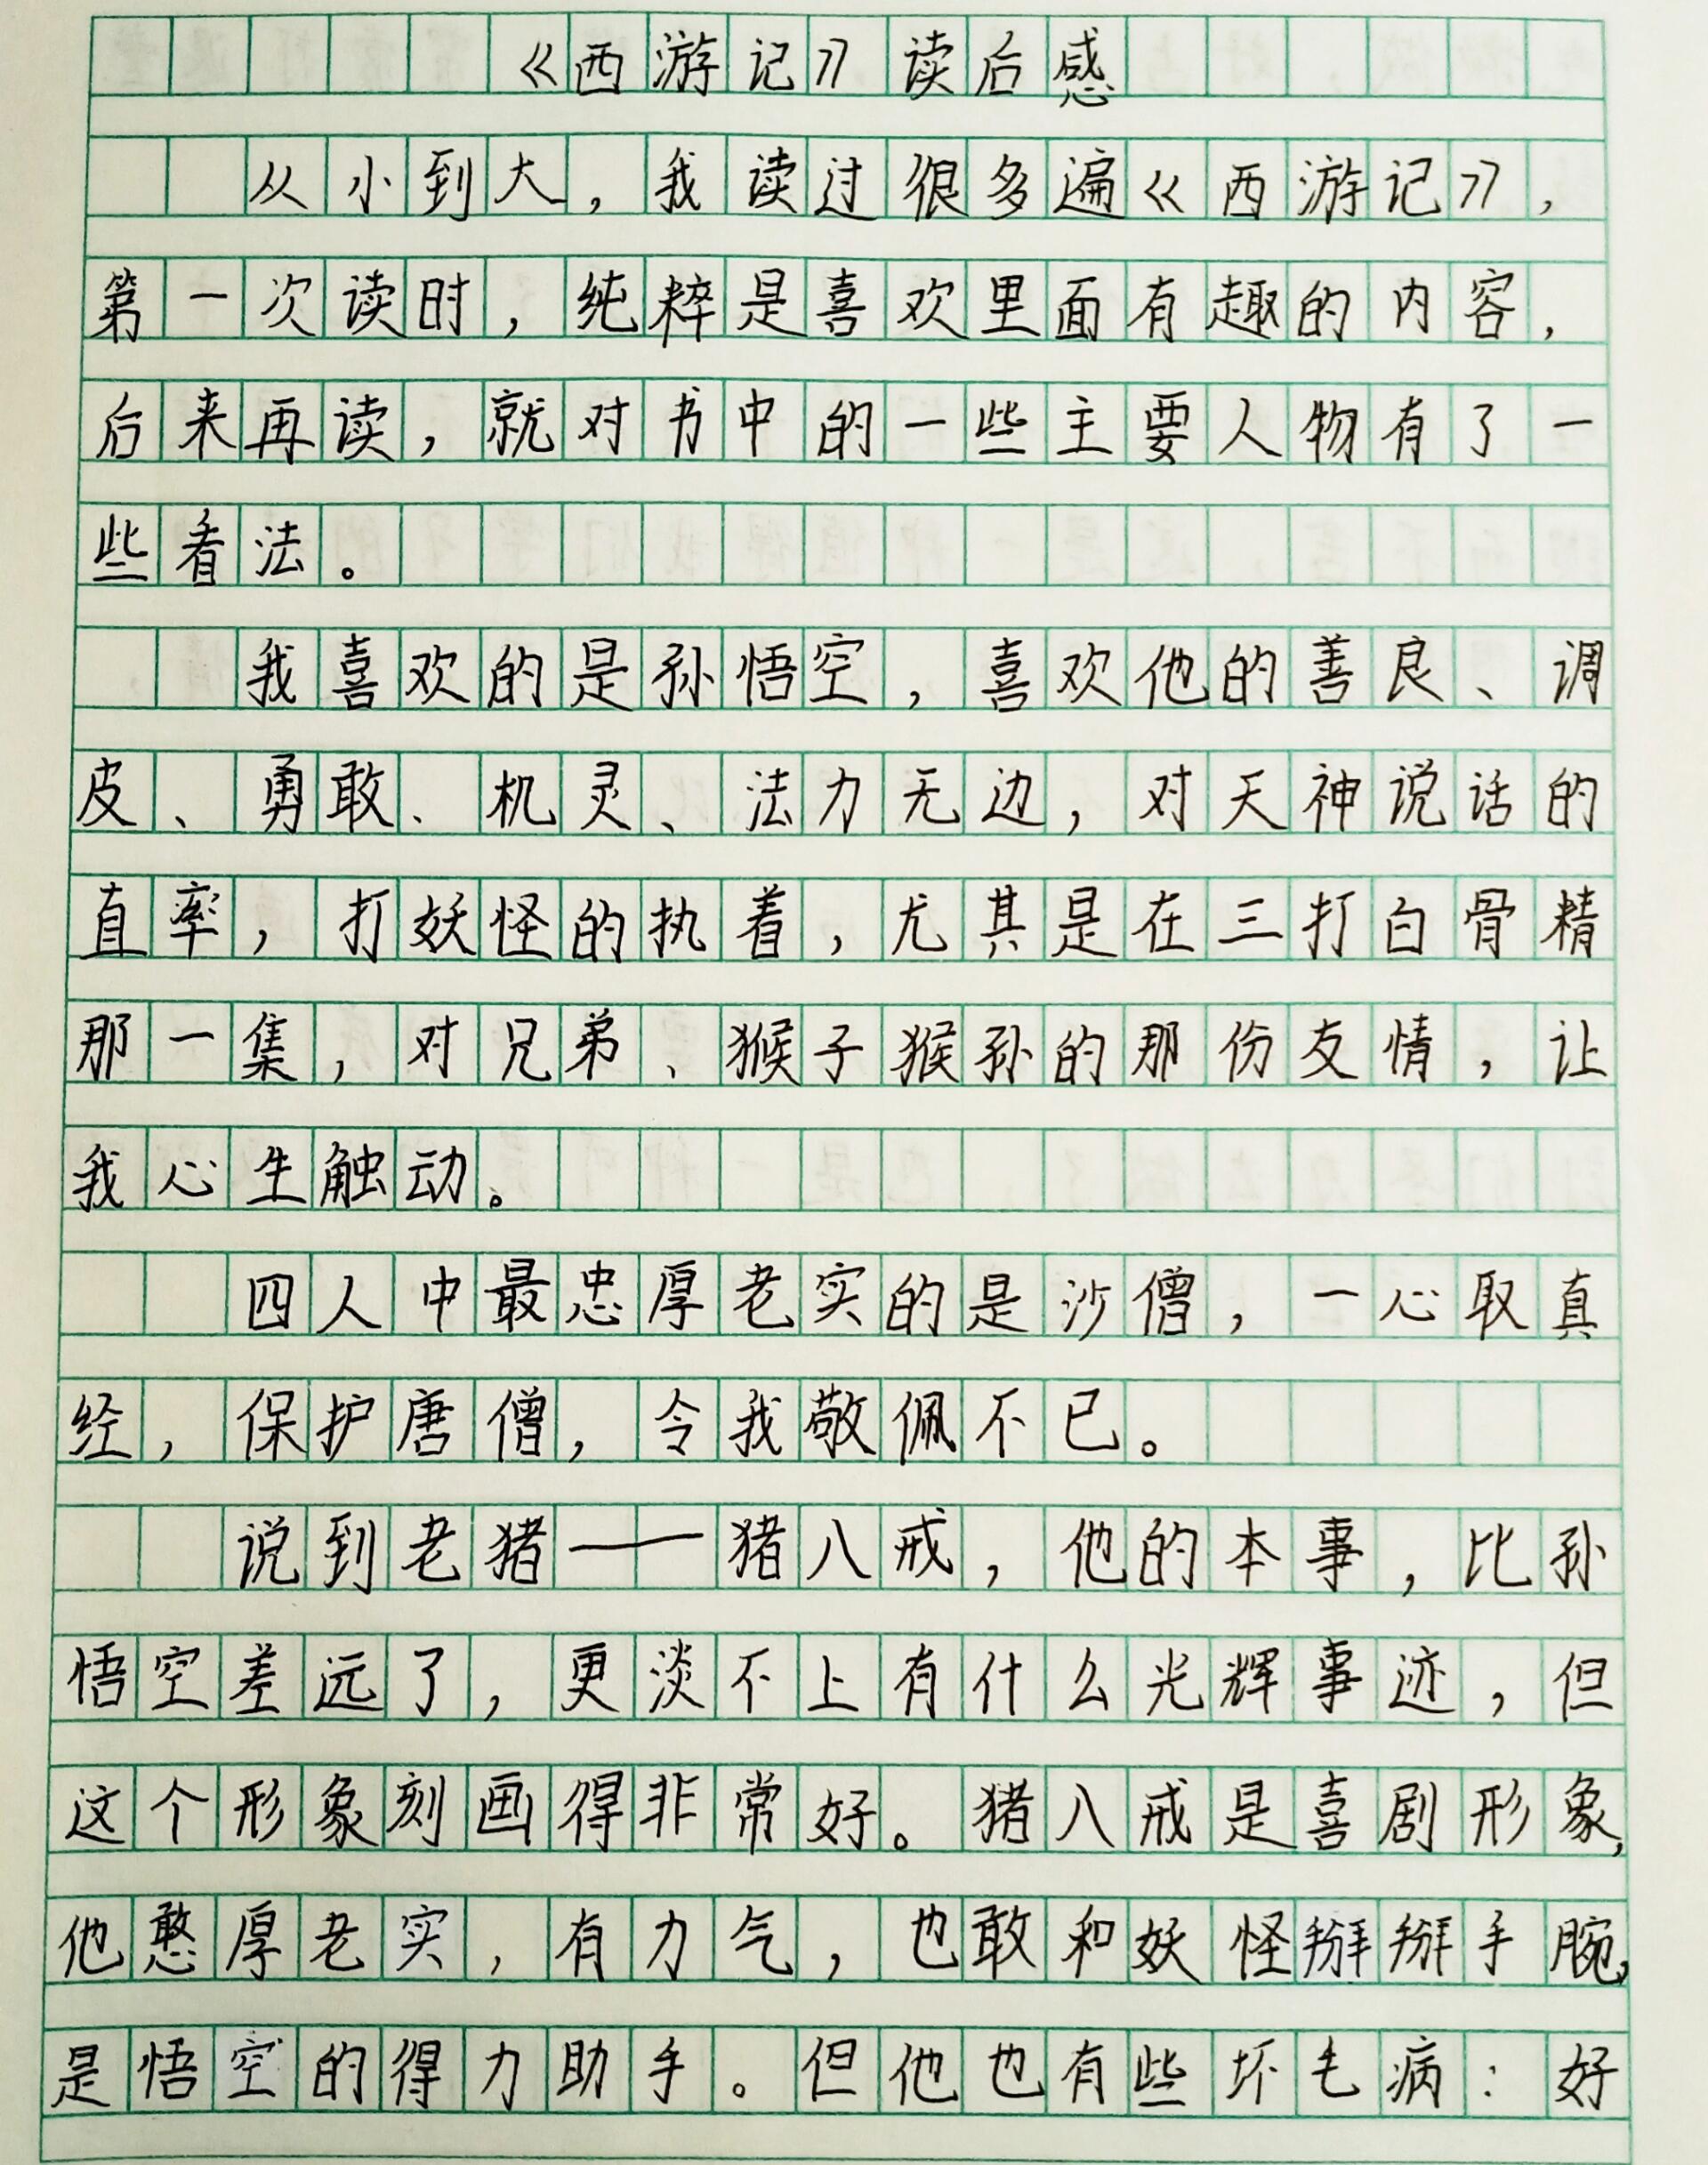 《西游记》读后感
从小到大，我读过很多遍《西游记》，
第一次读时，纯粹是喜欢里面有趣的内容，
后来再读，就对书中的一些主要人物有了一
些看法。
我喜欢的是孙悟空，喜欢他的善良、调
皮、勇敢、机灵、法力无边，对天神说话的
直率，打妖怪的执着，尤其是在三打白骨精
那一集，对兄弟、猴子猴孙的那份友情，让
我心生触动。
四人中最忠厚老实的是沙僧，一心取真
经，保护唐僧，令我敬佩不已。
说到老猪——猪八戒，他的本事，比孙
悟空差远了，更淡不上有什么光辉事迹，但
这个形象刻画得非常好。猪八戒是喜剧形象，
他憨厚老实，有力气，也敢和妖怪掰掰手腕，
是悟空的得力助手。但他也有些坏毛病：好